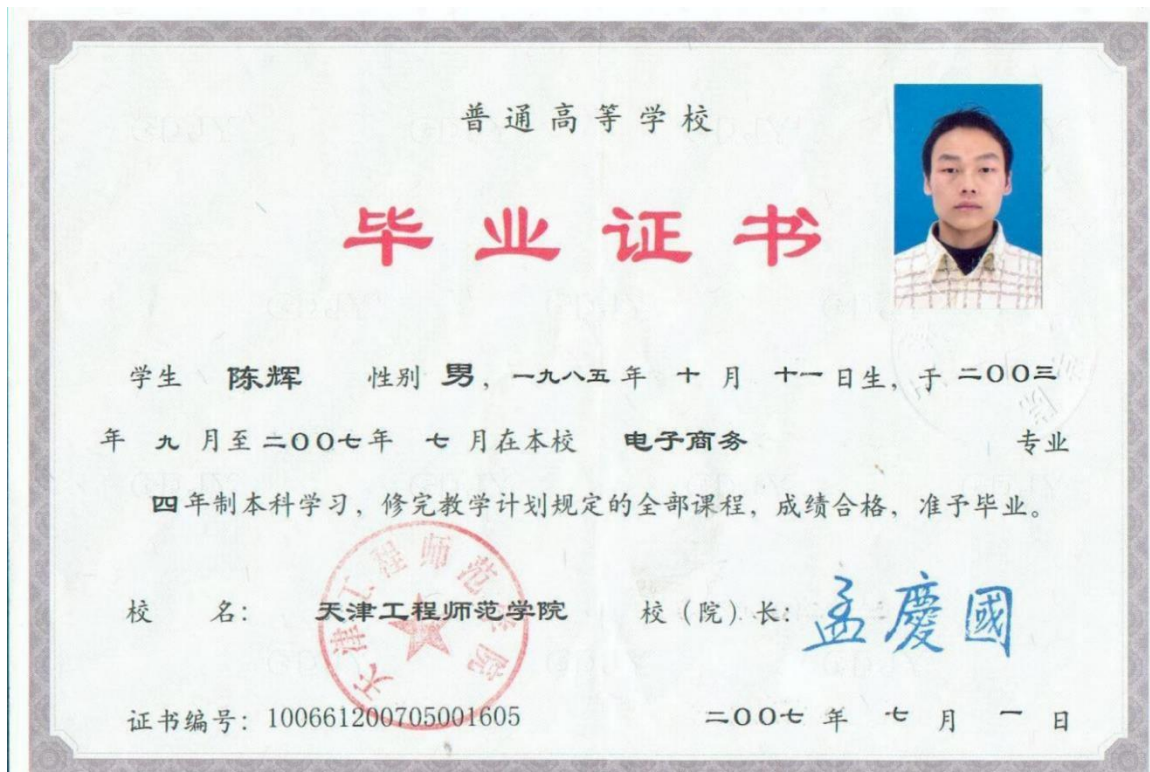 普通高等学校
毕业证书
学生 陈辉 性别 男，一九八五 年 十 月 十一 日生，于 二〇〇三
年 九 月至 二〇〇七 年 七 月在本校 电子商务 专业
四 年制本科学习，修完教学计划规定的全部课程，成绩合格，准予毕业。
校 名： 天津工程师范学院 校（院）长： 孟慶國
天津工程师范学院
证书编号：100661200705001605 二〇〇七 年 七 月 一 日